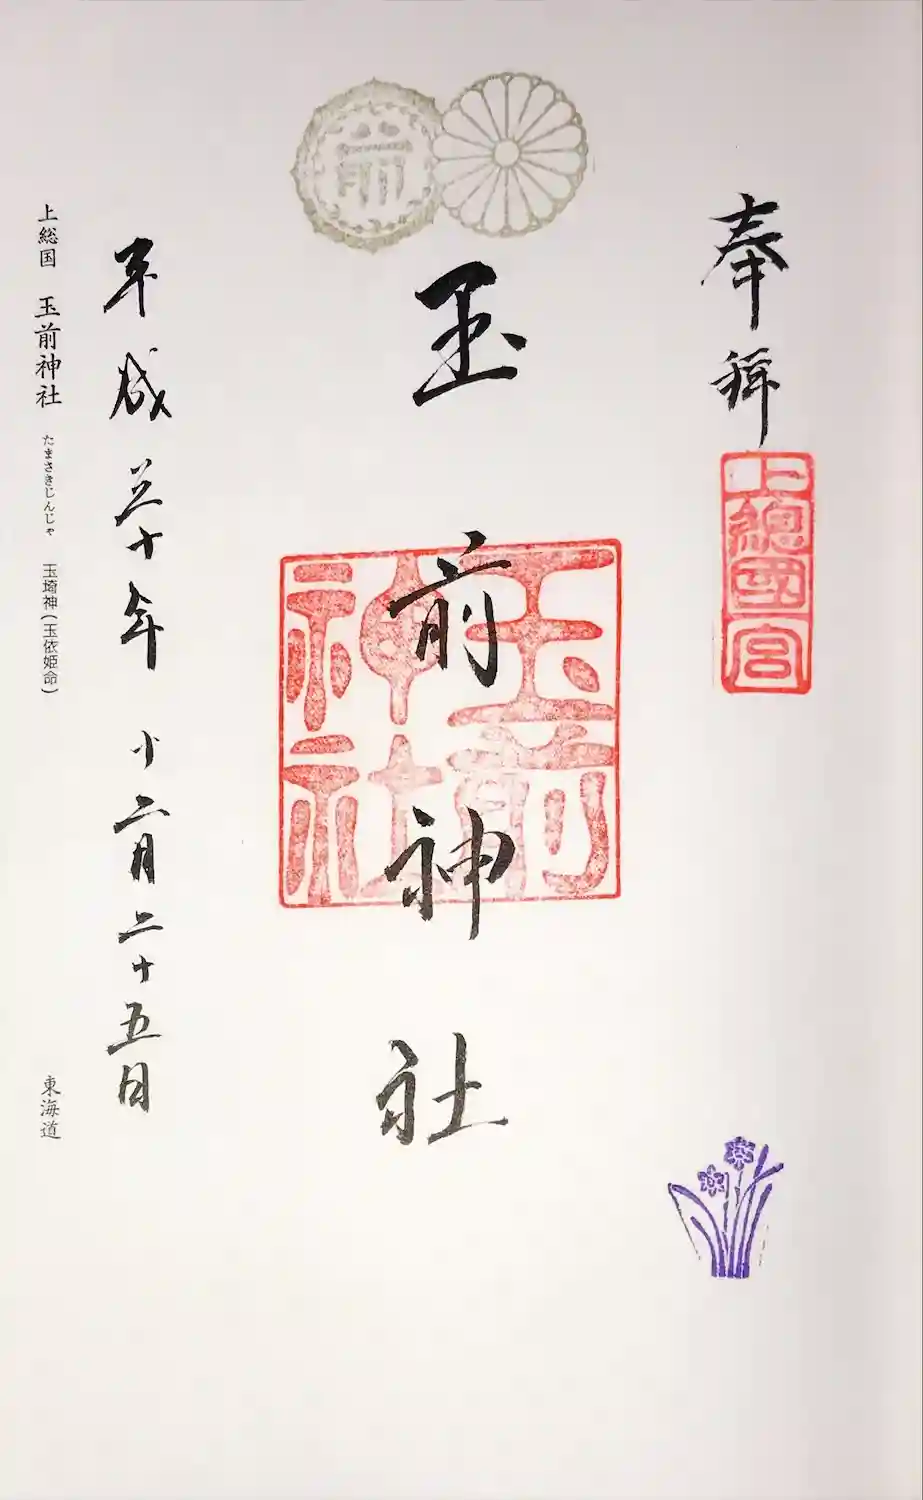 奉拝
上總國一宮
玉前神社
玉前神社
平成三十年十二月二十五日
上総国 玉前神社 たまさきじんじゃ 玉埼神(玉依姫命) 東海道